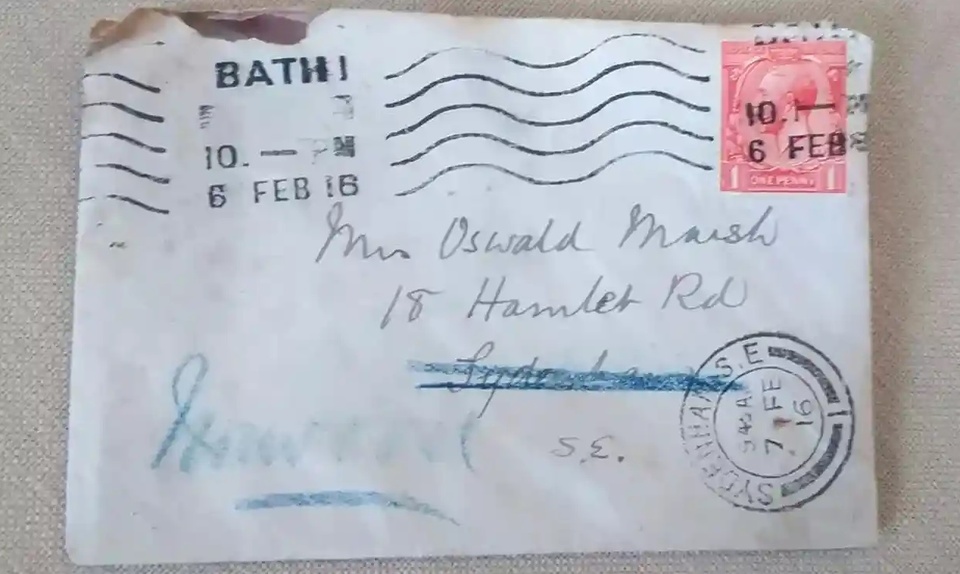 BATH 1
10. — PM
6 FEB 16
10. — PM
6 FEB
1 ONE PENNY 1
Mrs Oswald Marsh
18 Hamlet Rd
Sydenham
S.E.
SYDENHAM S.E
945AM
7 FE
16